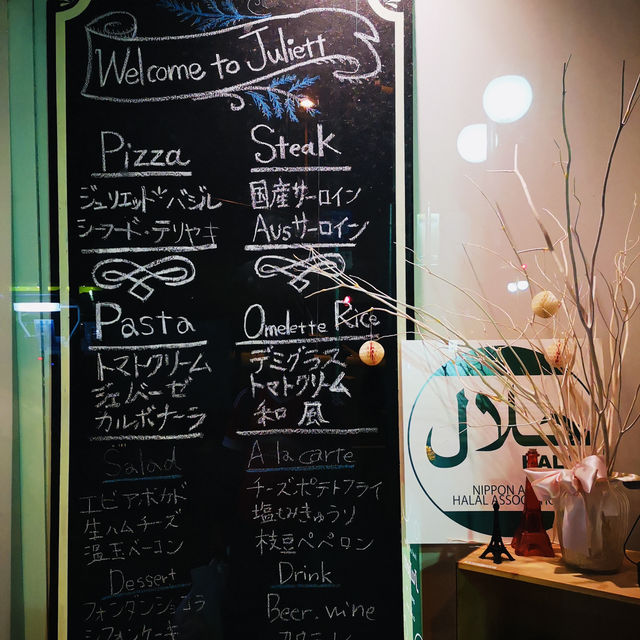 Welcome to Juliett
Pizza
ジュリエット*バジル
シーフード・テリヤキ
Steak
国産サーロイン
Ausサーロイン
Pasta
トマトクリーム
ジェノベーゼ
カルボナーラ
Omelette Rice
デミグラス
トマトクリーム
和風
Salad
エビアボカド
生ハムチーズ
温玉ベーコン
A la carte
チーズポテトフライ
塩もみきゅうり
枝豆ペペロン
Dessert
フォンダンショコラ
シフォンケーキ
Drink
Beer. wine
حلال
NIPPON A
HALAL ASSOC